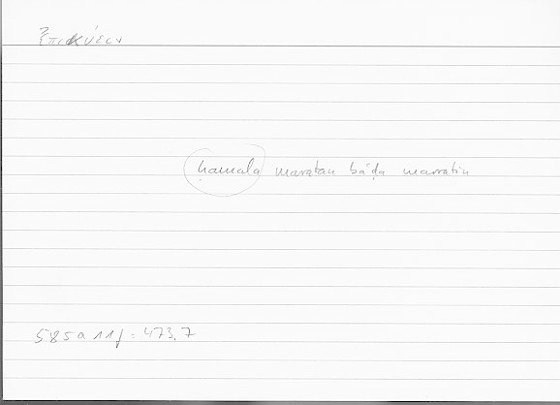 ἐπικύειν
ḥamala maratan baʿda marratin
585a 11f = 473.7